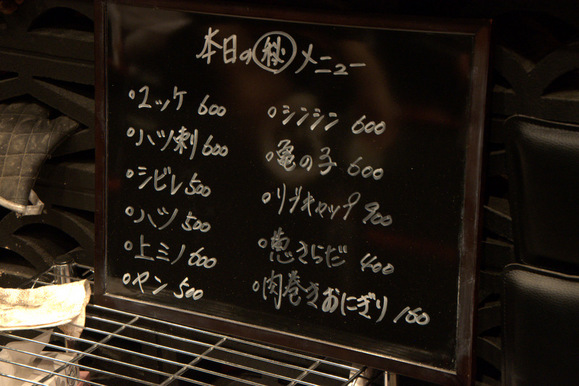 本日の㊙メニュー
ユッケ 600
ハツ刺 600
シビレ 500
ハツ 500
上ミノ 600
ヤン 500
シンシン 600
亀の子 600
リブキャップ 900
葱さらだ 400
肉巻きおにぎり 160